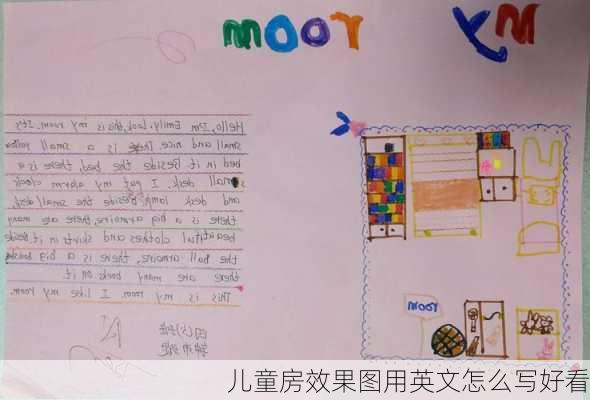 My room
Hello, I'm Emily. Look, this is my room. It's
small and nice. is a small
bed in it. Beside the bed, there is a
small desk. I put my alarm clock
and desk lamp. Beside the small desk
there is a big armoire, there are many
beautiful clothes and skirts in it. Beside
the ball armoire, there is a big
there are many books on it.
This is my room. I like my room.
room
儿童房效果图用英文怎么写好看